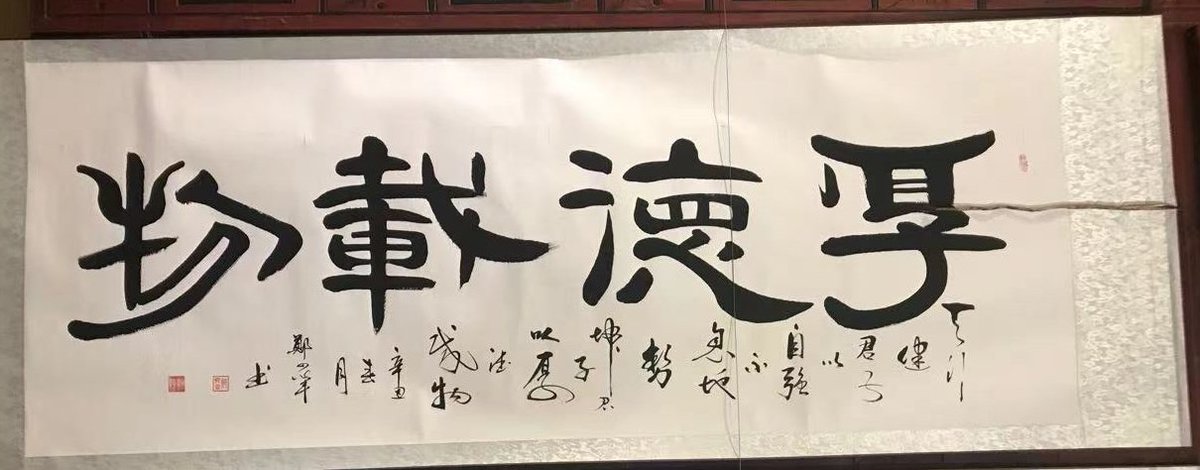 厚德載物
天行
健
君子
以
自强
不
息地
勢
坤君
子
以厚
德
载物
辛丑
春
月
鄭
书